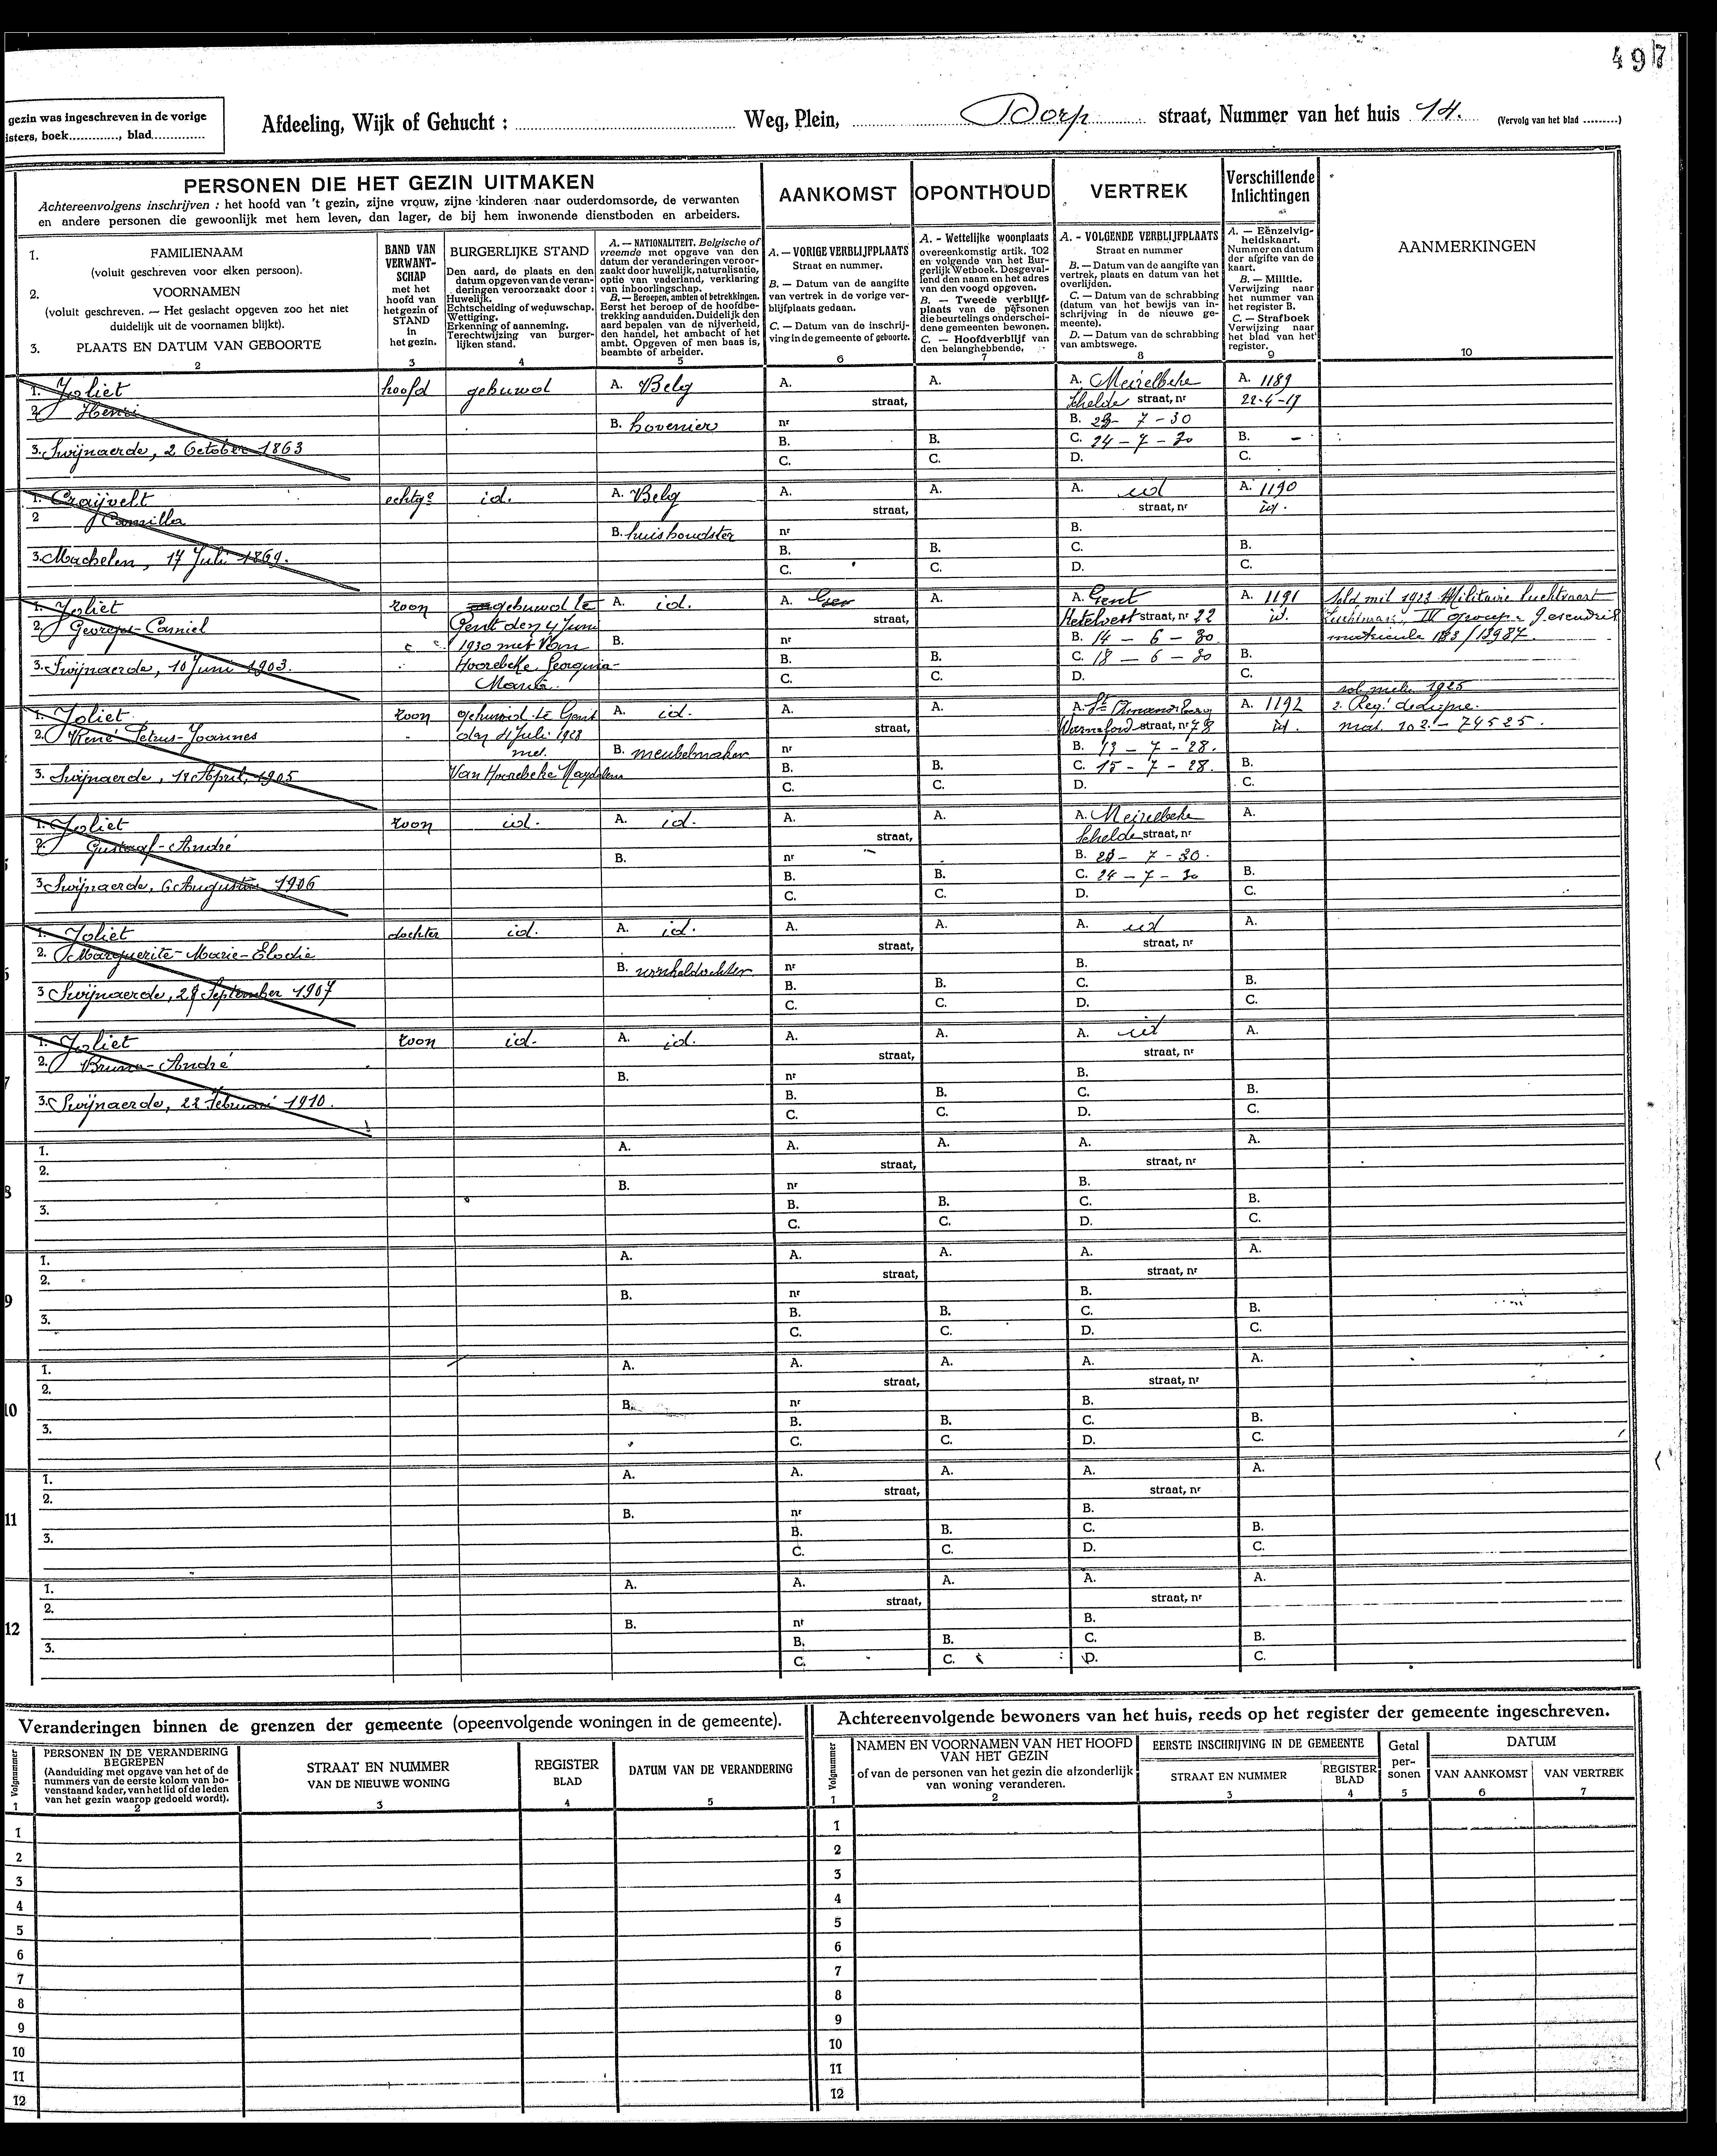 497
gezin was ingeschreven in de vorige
isters, boek............, blad.............
Afdeeling, Wijk of Gehucht : ........ Weg, Plein, ........ Dorp ........ straat, Nummer van het huis 14. (Vervolg van het blad .........)
PERSONEN DIE HET GEZIN UITMAKEN
Achtereenvolgens inschrijven : het hoofd van 't gezin, zijne vrouw, zijne kinderen naar ouderdomsorde, de verwanten
en andere personen die gewoonlijk met hem leven, dan lager, de bij hem inwonende dienstboden en arbeiders.
AANKOMST
OPONTHOUD
VERTREK
Verschillende
Inlichtingen
AANMERKINGEN
10
1. FAMILIENAAM
(voluit geschreven voor elken persoon).
2. VOORNAMEN
(voluit geschreven. — Het geslacht opgeven zoo het niet
duidelijk uit de voornamen blijkt).
3. PLAATS EN DATUM VAN GEBOORTE
2
BAND VAN
VERWANT-
SCHAP
met het
hoofd van
het gezin of
STAND
in
het gezin.
3
BURGERLIJKE STAND
Den aard, de plaats en den
datum opgeven van de veran-
deringen veroorzaakt door :
Huwelijk.
Echtscheiding of weduwschap.
Wettiging.
Erkenning of aanneming.
Terechtwijzing van burger-
lijken stand.
4
A. — NATIONALITEIT. Belgische of
vreemde met opgave van den
datum der veranderingen veroor-
zaakt door huwelijk, naturalisatie,
optie van vaderland, verklaring
van inboorlingschap.
B. — Beroepen, ambten of betrekkingen.
Eerst het beroep of de hoofdbe-
trekking aanduiden. Duidelijk den
aard bepalen van de nijverheid,
den handel, het ambacht of het
ambt. Opgeven of men baas is,
beambte of arbeider.
5
A. — VORIGE VERBLIJFPLAATS
Straat en nummer.
B. — Datum van de aangifte
van vertrek in de vorige ver-
blijfplaats gedaan.
C. — Datum van de inschrij-
ving in de gemeente of geboorte.
6
A. - Wettelijke woonplaats
overeenkomstig artik. 102
en volgende van het Bur-
gerlijk Wetboek. Desgeval-
lend den naam en het adres
van den voogd opgeven.
B. — Tweede verblijf-
plaats van de personen
die beurtelings onderschei-
dene gemeenten bewonen.
C. — Hoofdverblijf van
den belanghebbende.
7
A. - VOLGENDE VERBLIJFPLAATS
Straat en nummer
B. — Datum van de aangifte van
vertrek, plaats en datum van het
overlijden.
C. — Datum van de schrabbing
(datum van het bewijs van in-
schrijving in de nieuwe ge-
meente).
D. — Datum van de schrabbing
van ambtswege.
8
A. — Eënzelvig-
heidskaart.
Nummer en datum
der afgifte van de
kaart.
B. — Militie.
Verwijzing naar
het nummer van
het register B.
C. — Strafboek
Verwijzing naar
het blad van het
register.
9
1. Joliet hoofd gehuwd A. Belg A. A. A. Meirelbeke A. 1189
2. Henri straat, Schelde straat, nr 22-4-19
B. hovenier nr B. 23 - 7 - 30
3. Swijnaerde, 2 October 1863 B. B. C. 24 - 7 - 30 B. -
C. C. D. C.
1. Craijvelt echtge id. A. Belg A. A. A. id A. 1190
2 Camilla straat, straat, nr id.
B. huishoudster nr B.
3. Machelen, 17 Juli 1869. B. B. C. B.
C. C. D. C.
1. Joliet zoon gehuwd te A. id. A. Gen A. A. Gent A. 1191 Sold mil 1923 Militaire luchtvaart
2. Georges-Camiel Gent den 4 Juni straat, Ketelvest straat, nr 22 id. IV groep
1930 met Van B. nr B. 14 - 6 - 30 matricule 183/13987.
3. Swijnaerde, 10 Juni 1903. Hoorebeke Georgina- B. B. C. 18 - 6 - 30 B.
Maria. C. C. D. C.
sol. mil. 1925
1. Joliet zoon gehuwd te Gent A. id. A. A. A. St Amandsberg A. 1192 2. Reg.
2. René Petrus-Joannes den 21 Juli 1928 straat, straat, nr 78 id. mat. 102 - 74525.
met B. meubelmaker nr B. 13 - 7 - 28.
3. Swijnaerde, 18 April, 1905 Van Hoorebeke B. B. C. 15 - 7 - 28. B.
C. C. D. C.
1. Joliet zoon id. A. id. A. A. A. Meirelbeke A.
2. Gustaaf-André straat, Schelde straat, nr
B. nr B. 23 - 7 - 30.
3. Swijnaerde, 6 Augustus 1906 B. B. C. 24 - 7 - 30 B.
C. C. D. C.
1. Joliet dochter id. A. id. A. A. A. id A.
2. Marguerite-Marie-Elodie straat, straat, nr
B. winkeldochter nr B.
3 Swijnaerde, 28 September 1907 B. B. C. B.
C. C. D. C.
1. Joliet zoon id. A. id. A. A. A. id A.
2. Bruno-André straat, straat, nr
B. nr B.
3. Swijnaerde, 22 Februari 1910. B. B. C. B.
C. C. D. C.
1. A. A. A. A. A.
2. straat, straat, nr
8 B. nr B.
3. B. B. C. B.
C. C. D. C.
1. A. A. A. A. A.
2. straat, straat, nr
9 B. nr B.
3. B. B. C. B.
C. C. D. C.
1. A. A. A. A. A.
2. straat, straat, nr
10 B. nr B.
3. B. B. C. B.
C. C. D. C.
1. A. A. A. A. A.
2. straat, straat, nr
11 B. nr B.
3. B. B. C. B.
C. C. D. C.
1. A. A. A. A. A.
2. straat, straat, nr
12 B. nr B.
3. B. B. C. B.
C. C. D. C.
Veranderingen binnen de grenzen der gemeente (opeenvolgende woningen in de gemeente).
Volgnummer
1
PERSONEN IN DE VERANDERING
BEGREPEN
(Aanduiding met opgave van het of de
nummers van de eerste kolom van bo-
venstaand kader, van het lid of de leden
van het gezin waarop gedoeld wordt).
2
STRAAT EN NUMMER
VAN DE NIEUWE WONING
3
REGISTER
BLAD
4
DATUM VAN DE VERANDERING
5
1
2
3
4
5
6
7
8
9
10
11
12
Achtereenvolgende bewoners van het huis, reeds op het register der gemeente ingeschreven.
Volgnummer
1
NAMEN EN VOORNAMEN VAN HET HOOFD
VAN HET GEZIN
of van de personen van het gezin die afzonderlijk
van woning veranderen.
2
EERSTE INSCHRIJVING IN DE GEMEENTE
STRAAT EN NUMMER
3
REGISTER
BLAD
4
Getal
per-
sonen
5
DATUM
VAN AANKOMST
6
VAN VERTREK
7
1
2
3
4
5
6
7
8
9
10
11
12